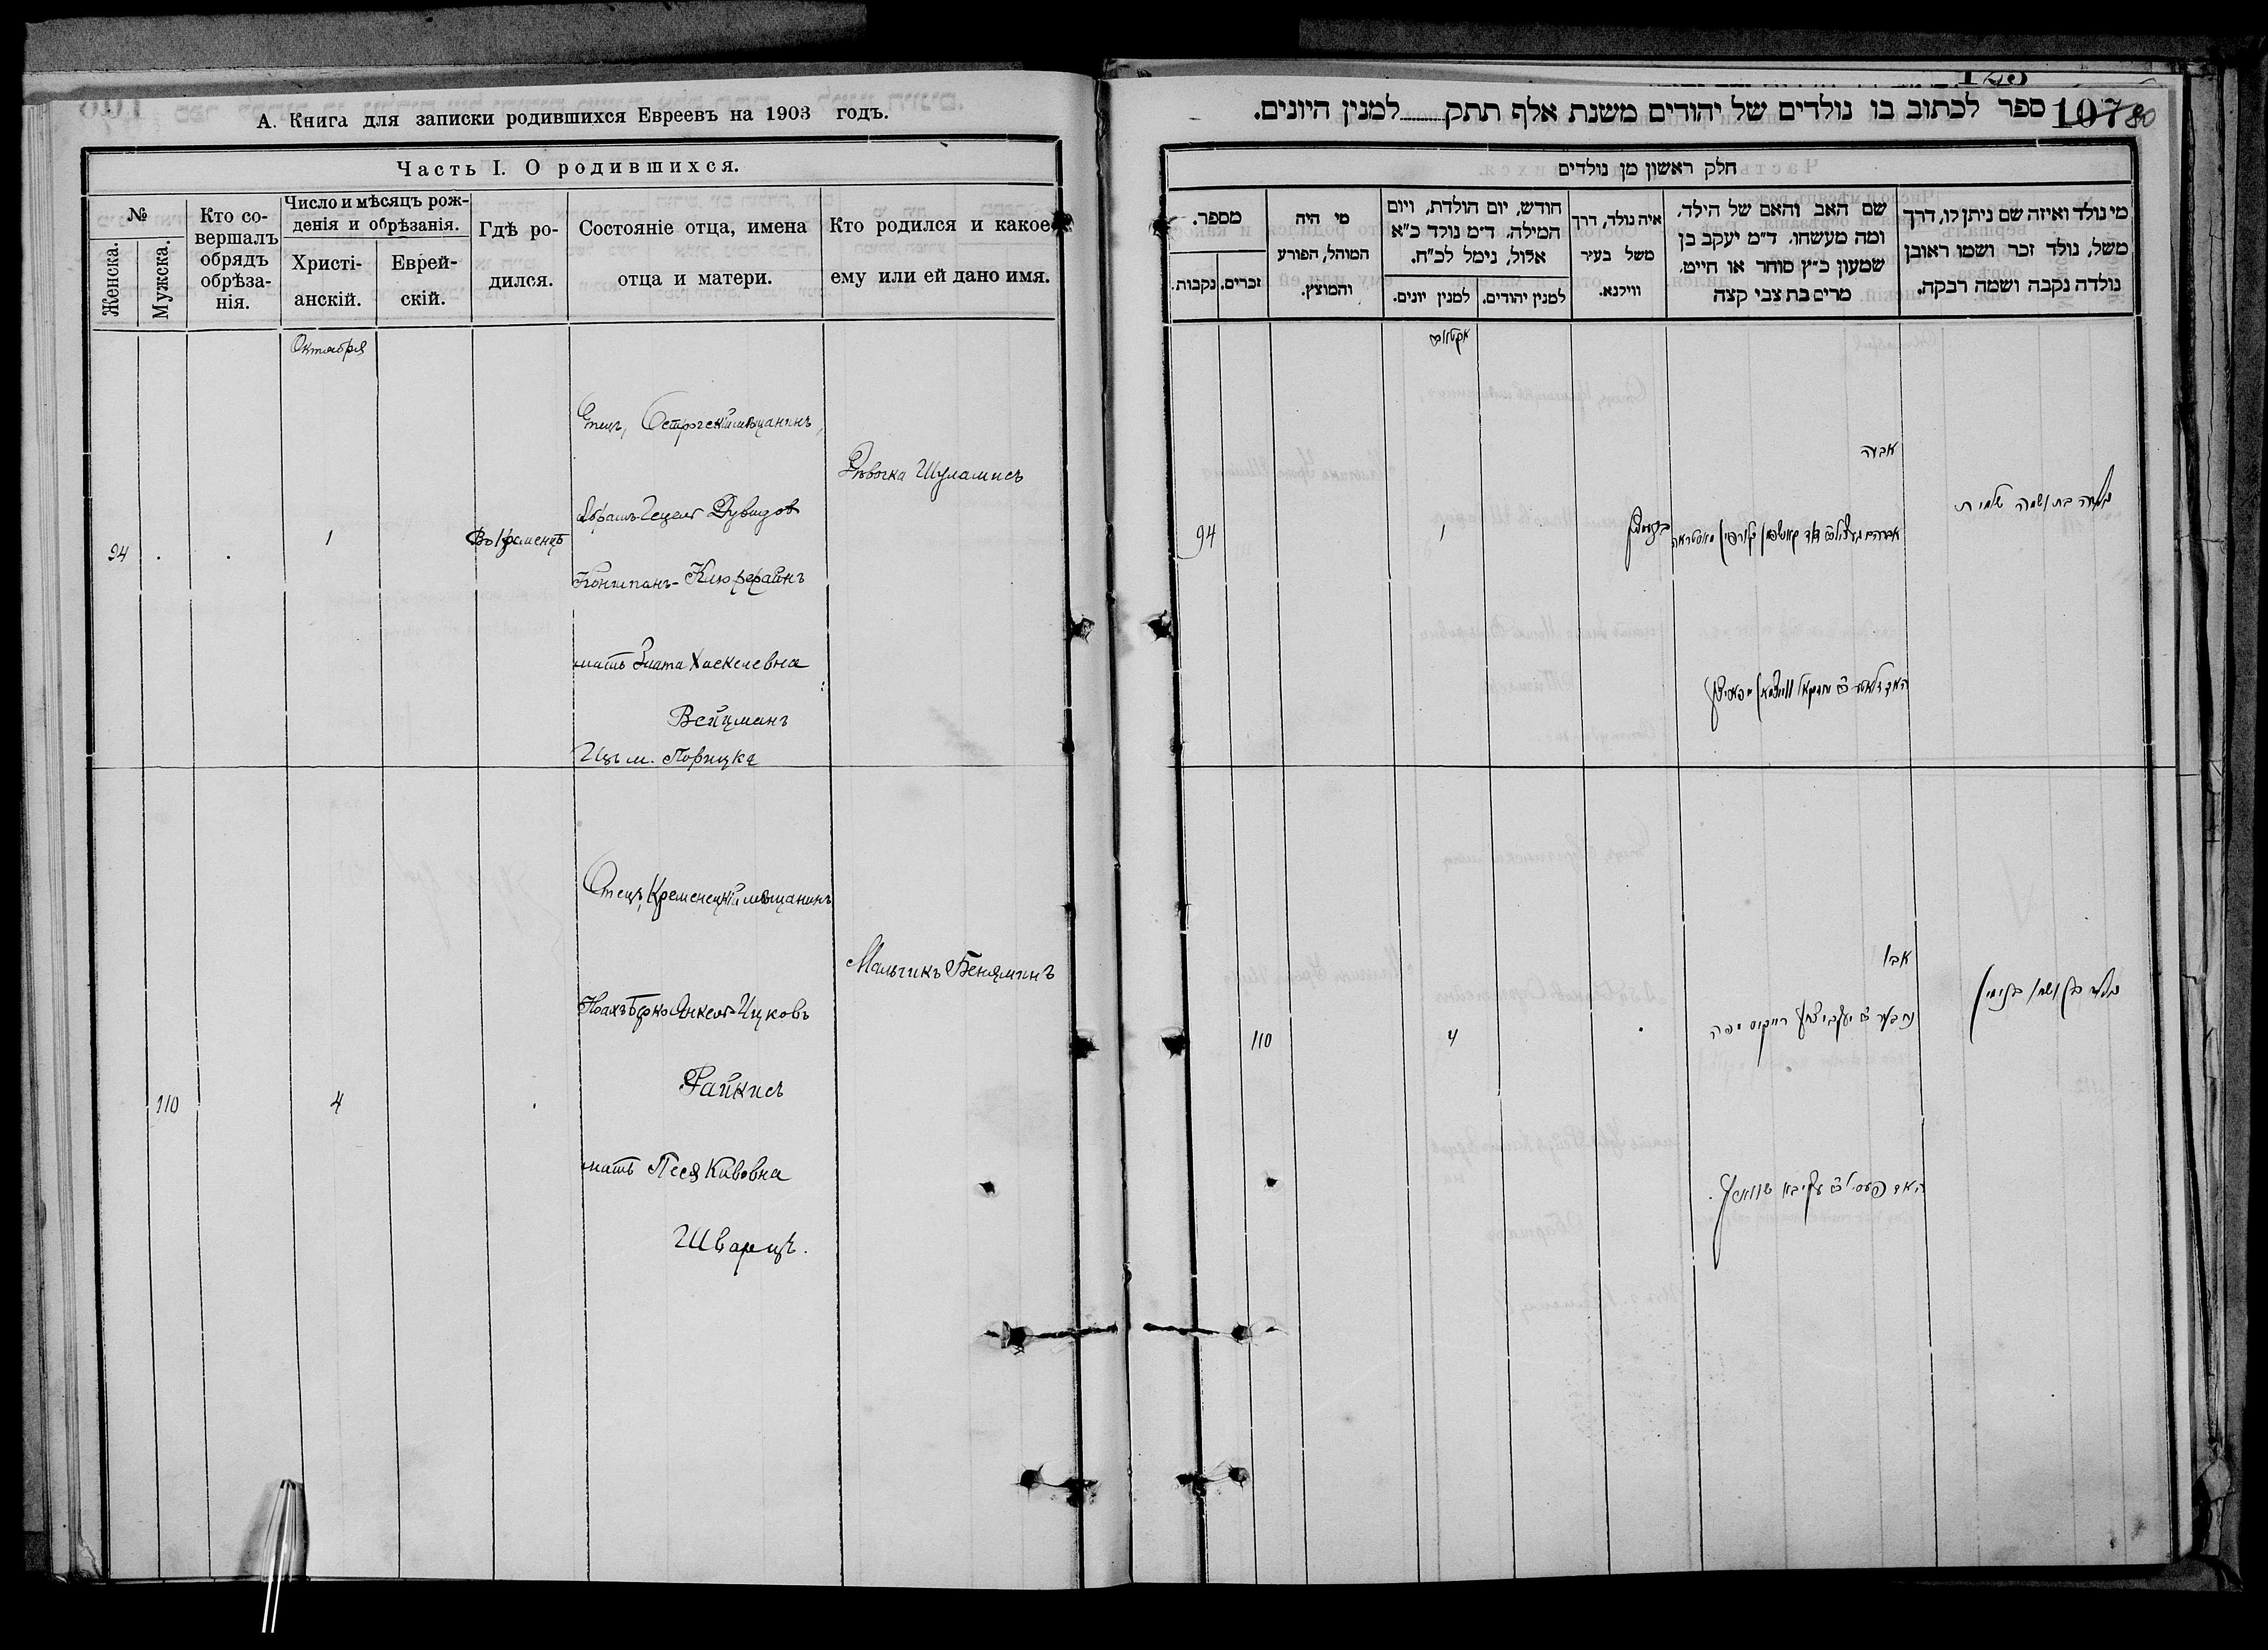 А. Книга для записки родившихся Евреевъ на 1903 годъ.
Часть I. О родившихся.
№
Женска.
Мужска.
Кто со-
вершалъ
обрядъ
обрѣза-
нія.
Число и мѣсяцъ рож-
денія и обрѣзанія.
Христі-
анскій.
Еврей-
скій.
Гдѣ ро-
дился.
Состояніе отца, имена
отца и матери.
Кто родился и какое
ему или ей дано имя.
Октября
94
1
Въ Кременцѣ
Отецъ, Острогскій мѣщанинъ,
Абрамъ-Гецель Дувидов
Конштанъ-Клюрфайнъ
мать Злата Хаскелевна
Вейцманъ
Изъ м. Порицка
Дѣвочка Шуламисъ
110
4
Отецъ, Кременецкій мѣщанинъ
Ноахъ Берко Янкель-Ицковъ
Райкисъ
мать Песя Кивовна
Шварцъ.
Мальчикъ Беняминъ
ספר לכתוב בו נולדים של יהודים משנת אלף תתק למנין היונים.
107 80
חלק ראשון מן נולדים
מי נולד ואיזה שם ניתן לו, דרך
משל, נולד זכר ושמו ראובן
נולדה נקבה ושמה רבקה.
שם האב והאם של הילד,
ומה מעשהו. ד״מ יעקב בן
שמעון כ״ץ סוחר או חייט,
מרים בת צבי קצה
איה נולד, דרך
משל בעיר
ווילנא.
חודש, יום הולדת, ויום
המילה. ד״מ נולד כ״א
אלול, נימל לכ״ח.
למנין יהודים.
למנין יונים.
מי היה
המוהל, הפורע
והמוצץ.
מספר.
זכרים.
נקבות.
אביה
נולדה בת ושמה שלמית
1
94
אביו
נולד בן ושמו בנימין
4
110